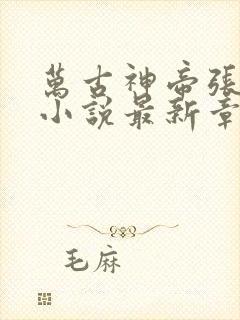 萬古神帝張
小說最新章
毛麻